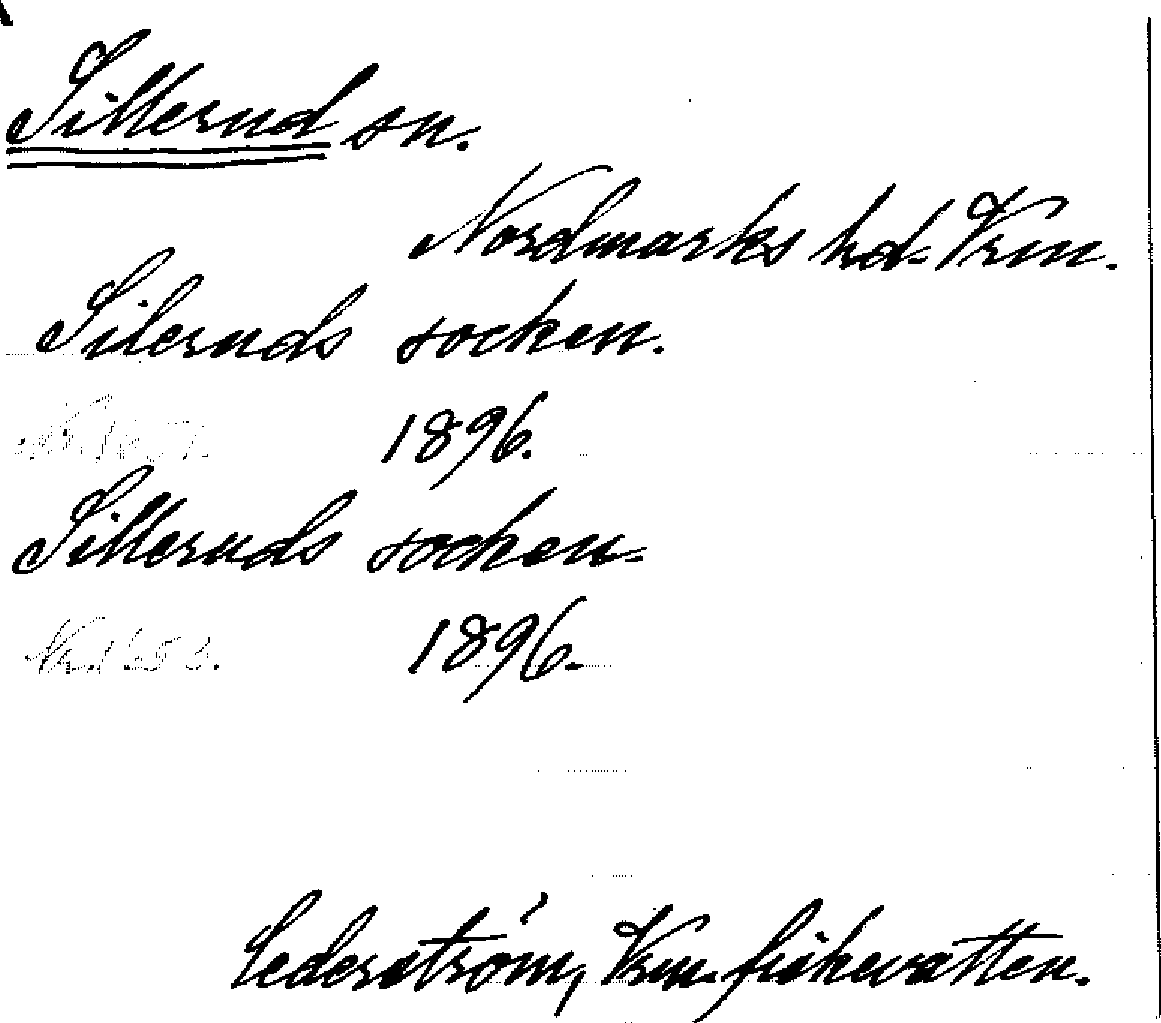 Sillerud sn.
Nordmarks hd. Vrm.
Sileruds socken.
1896.
Silleruds socken.
1896.
Cederström, Vrm. fiskevatten.